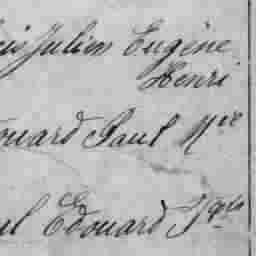 is Julien Eugène
Henri
ouard Paul Mie
ul Edouard